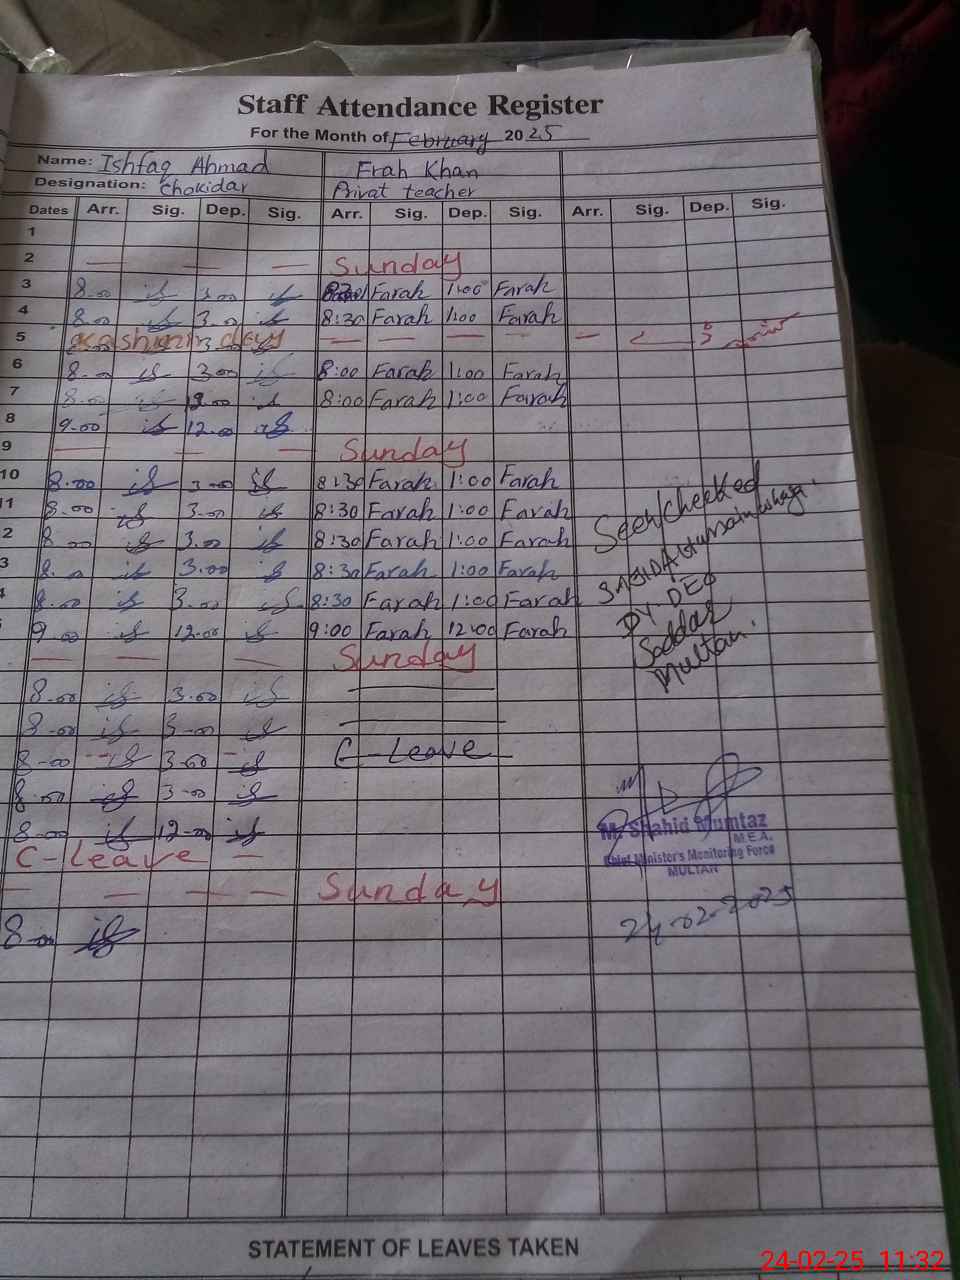 Staff Attendance Register
For the Month of February 2025
Name: Ishfaq Ahmad Erah Khan
Designation: Chokidar Privat teacher
Dates Arr. Sig. Dep. Sig. Arr. Sig. Dep. Sig. Arr. Sig. Dep. Sig.
1
2 — — — Sunday
3 8.00 3.00 Farah 1:00 Farah
4 8.00 3.00 8:30 Farah 1:00 Farah
5 day — — — — —
6 8.00 3.00 8:00 Farah 1:00 Farah
7 8.00 12.00 8:00 Farah 1:00 Farah
8 9.00 12.00
9 — — — Sunday
10 8.00 3.00 8:30 Farah 1:00 Farah
11 8.00 3.00 8:30 Farah 1:00 Farah
2 8.00 3.00 8:30 Farah 1:00 Farah
3 8.00 3.00 8:30 Farah 1:00 Farah
8.00 3.00 8:30 Farah 1:00 Farah
9.00 12.00 9:00 Farah 12:00 Farah
— — — Sunday
8.00 3.00
8.00 3.00
8.00 3.00 C-Leave
8.00 3.00
8.00 12.00
C-Leave —
— — — — Sunday
8.00
Seen/checked
DY. DEO
Saddar
Multan.
M. Shahid Mumtaz
M.E.A.
Chief Minister's Monitoring Force
MULTAN
24-02-2025
STATEMENT OF LEAVES TAKEN
24-02-25 11:32